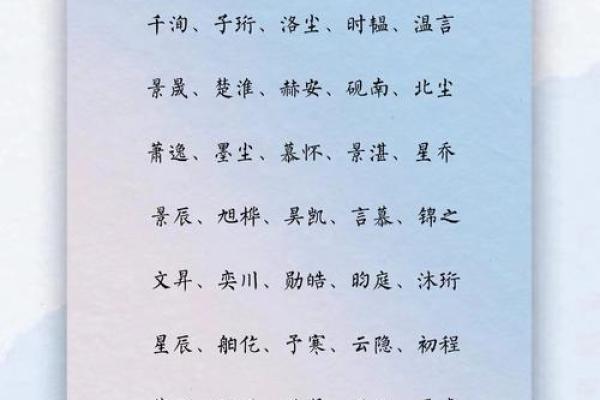 千洵、子珩、洛尘、时韫、温言
景晟、楚淮、赫安、砚南、北尘
萧逸、墨尘、慕怀、景湛、星乔
景辰、旭桦、昊凯、言慕、锦之
文昇、奕川、勋皓、昀庭、沐珩
星辰、舶仡、予寒、云隐、初程